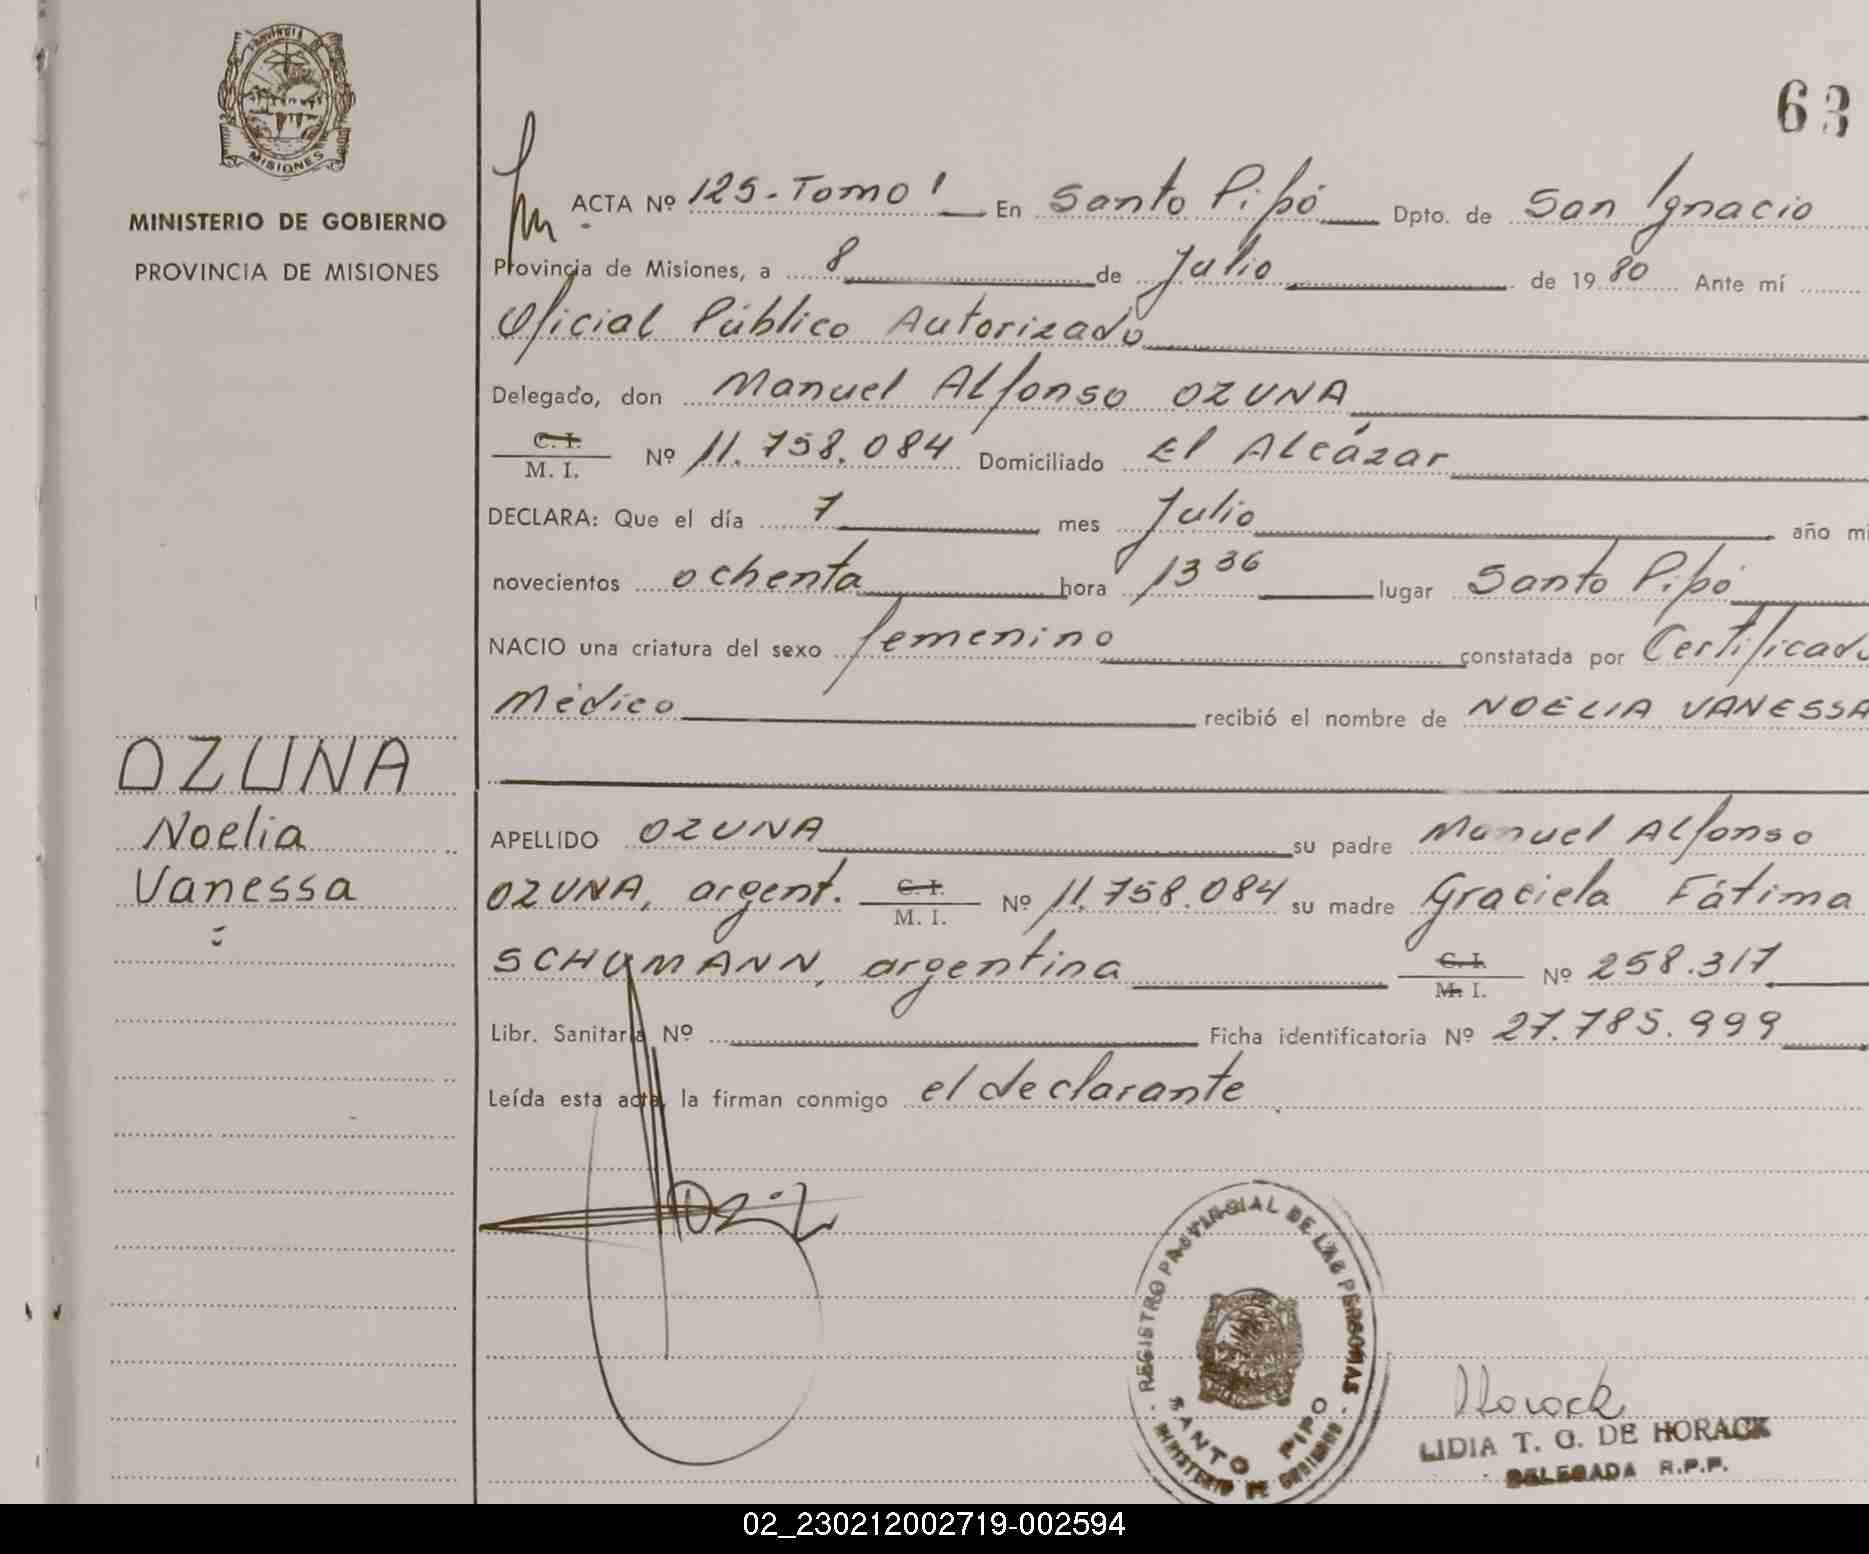 PROVINCIA DE
MISIONES
MINISTERIO DE GOBIERNO
PROVINCIA DE MISIONES
63
ACTA Nº 125-Tomo 1 En Santo Pipó Dpto. de San Ignacio
Provincia de Misiones, a 8 de Julio de 1980 Ante mí
Oficial Público Autorizado
Delegado, don Manuel Alfonso OZUNA
C. I. / M. I. Nº 11.758.084 Domiciliado El Alcázar
DECLARA: Que el día 7 mes Julio año mi
novecientos ochenta hora 13 36 lugar Santo Pipó
NACIO una criatura del sexo femenino constatada por Certificado
Médico recibió el nombre de NOELIA VANESSA
OZUNA
Noelia
Vanessa
APELLIDO OZUNA su padre Manuel Alfonso
OZUNA, argent. C. I. / M. I. Nº 11.758.084 su madre Graciela Fátima
SCHUMANN, argentina C. I. / M. I. Nº 258.317
Libr. Sanitaria Nº Ficha identificatoria Nº 27.785.999
Leída esta acta, la firman conmigo el declarante
REGISTRO PROVINCIAL DE LAS PERSONAS
SANTO PIPO
MINISTERIO DE GOBIERNO
Horack
LIDIA T. G. DE HORACK
DELEGADA R.P.P.
02_230212002719-002594